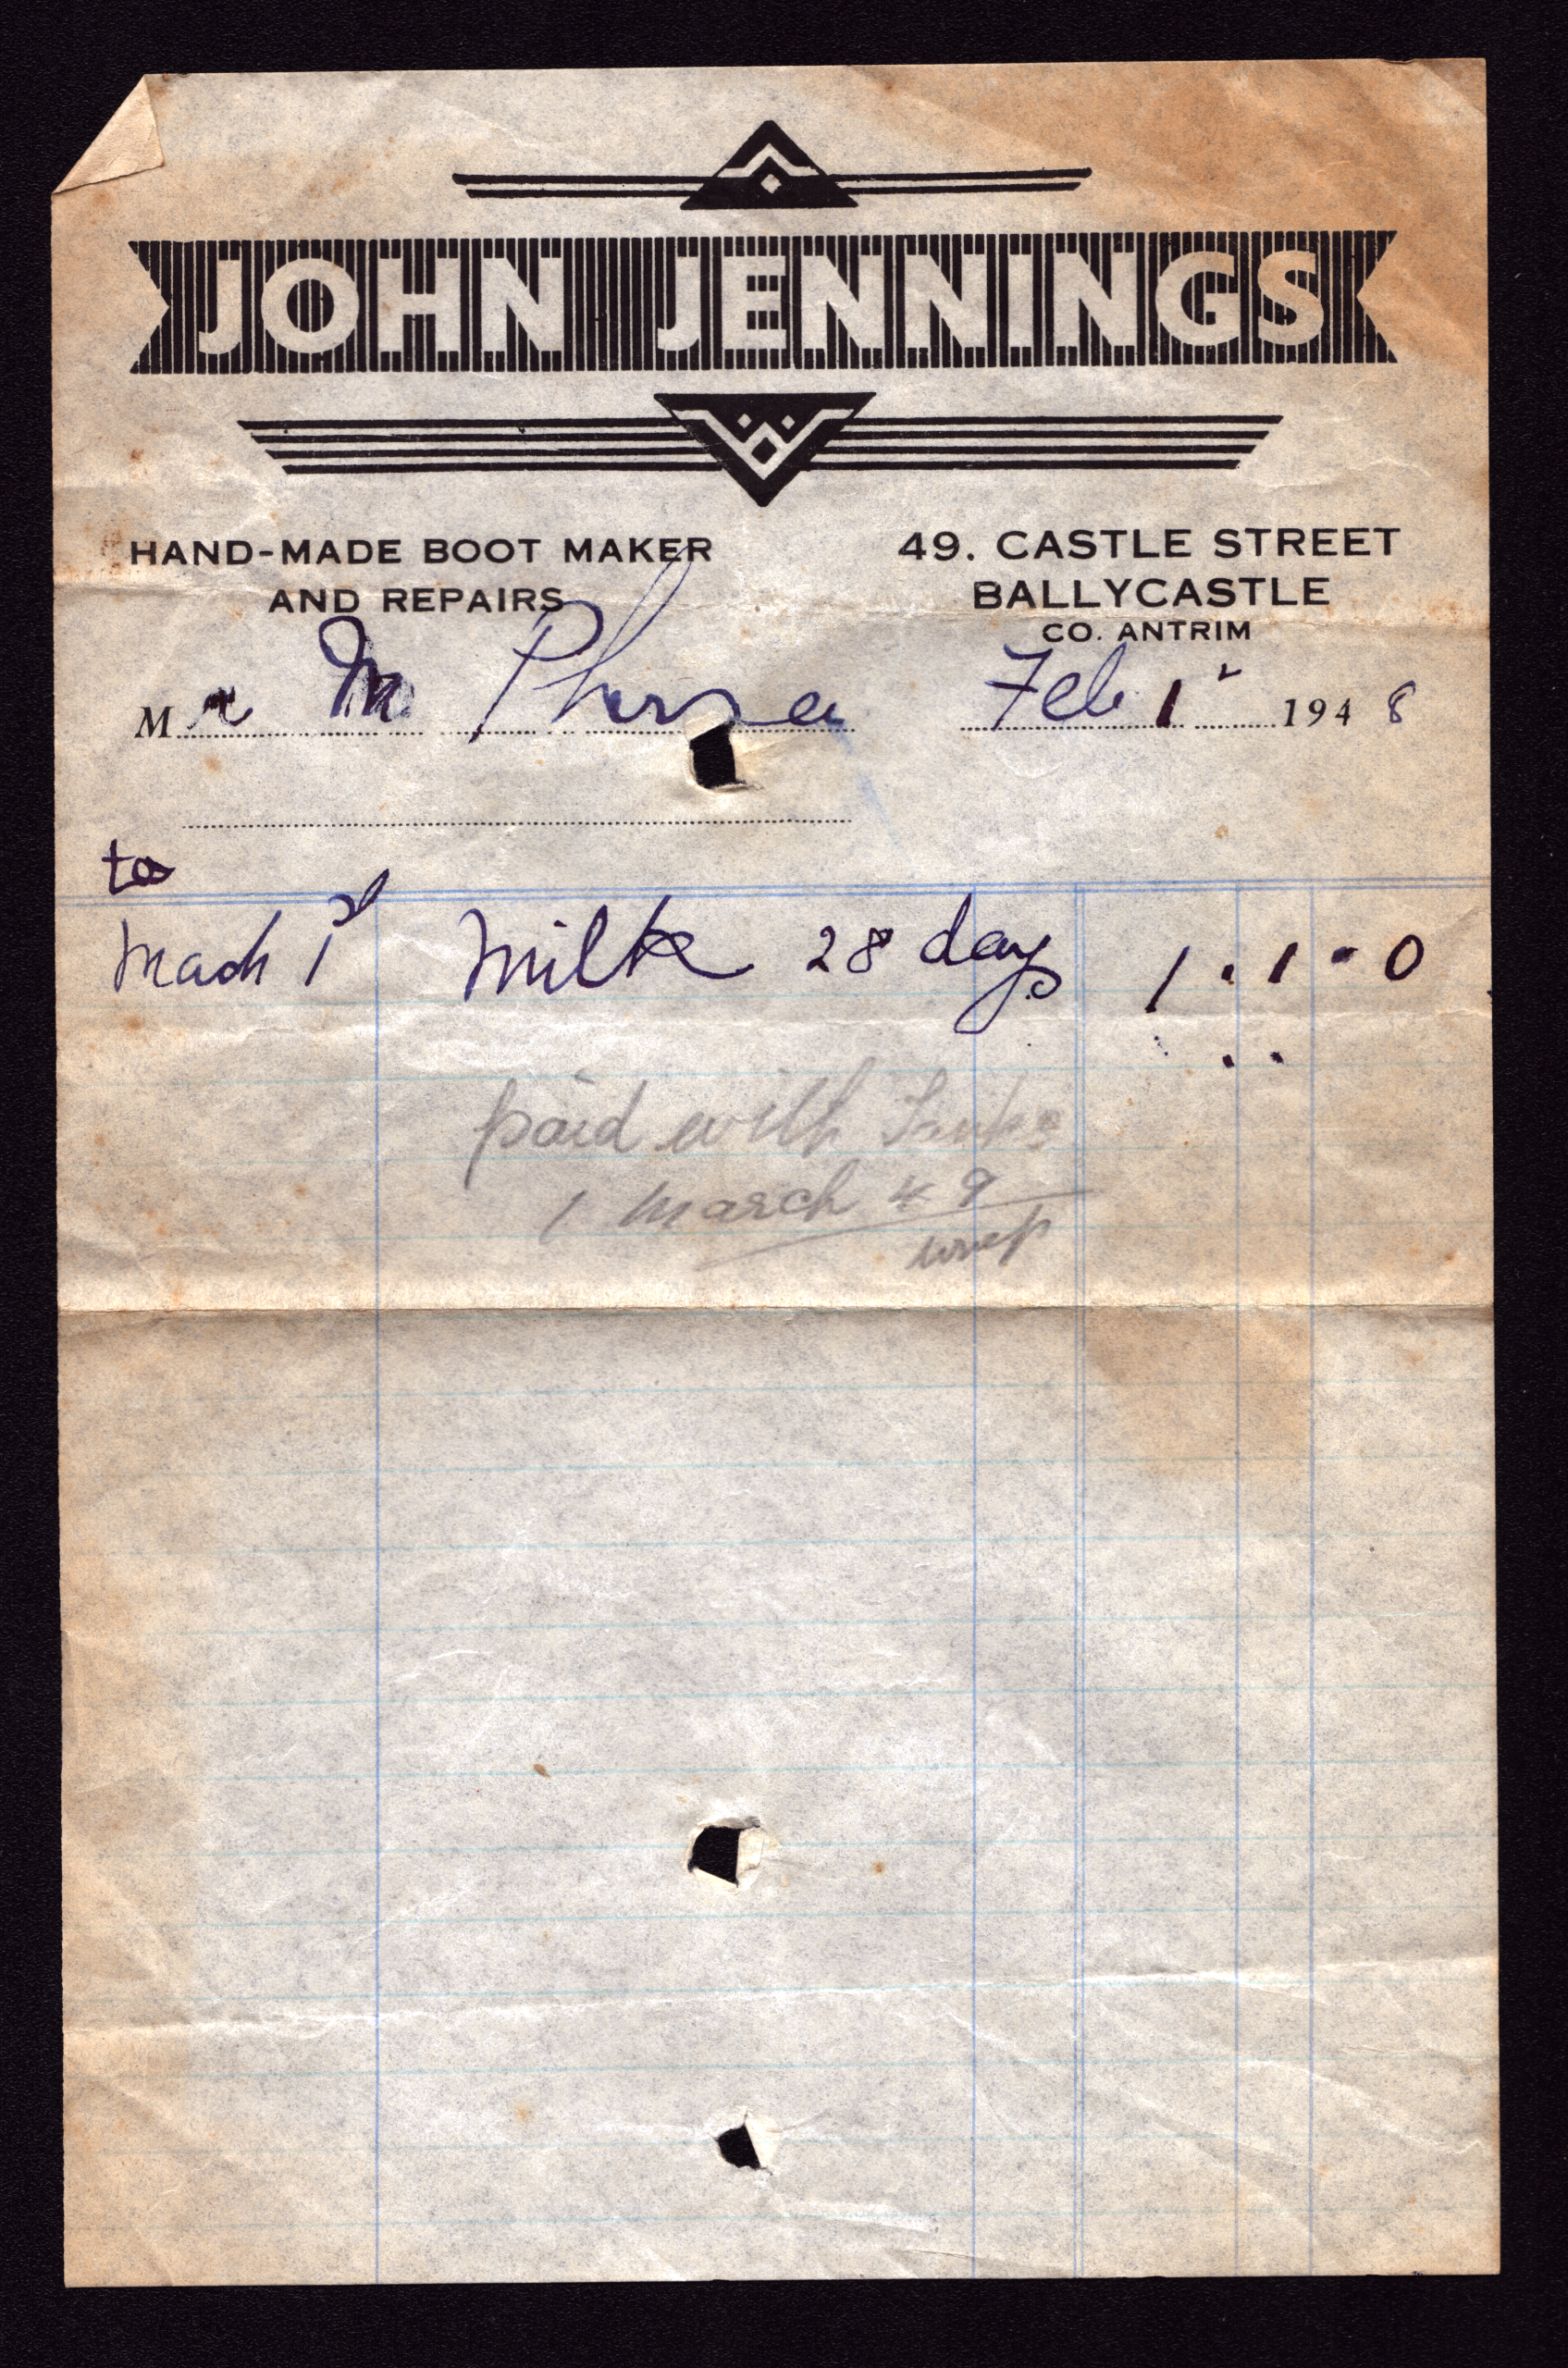 JOHN JENNINGS
HAND-MADE BOOT MAKER
AND REPAIRS
49. CASTLE STREET
BALLYCASTLE
CO. ANTRIM
Mr Mc Pherson Feb 1st 1948
to
Mach 1st Milk 28 days 1 . 1 - 0
paid with
1 March 49